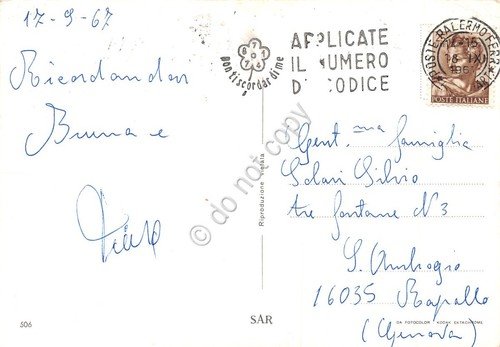 17-9-67
Ricordandovi
Bruna e
APPLICATE
IL NUMERO
DI CODICE
non ti scordar di me
POSTE ITALIANE
POSTE-PALERMO FERR.
1967
Gent.ma famiglia
Solari Silvio
tre fontane N 3
S. Ambrogio
16035 Rapallo
(Genova)
Riproduzione vietata
do not copy
506
SAR
DA FOTOCOLOR KODAK EKTACHROME